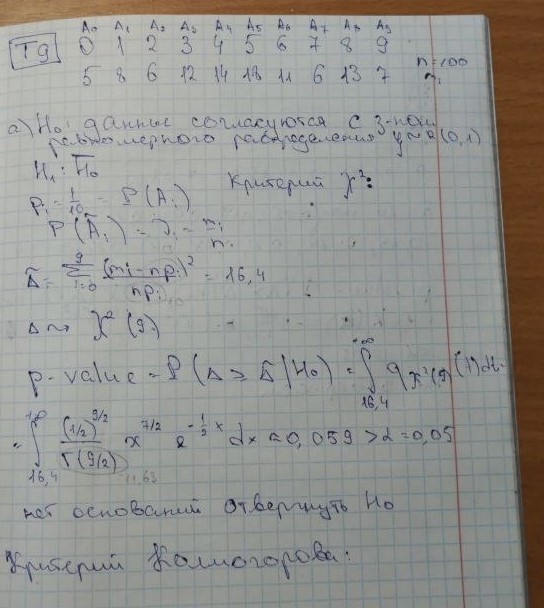 T9
A₀ A₁ A₂ A₃ A₄ A₅ A₆ A₇ A₈ A₉
0 1 2 3 4 5 6 7 8 9
5 8 6 12 14 18 11 6 13 7 n=100
a) H₀: данные согласуются с з-ном
равномерного распределения (0,1)
H₁: H̅₀ Критерий χ²:
pᵢ = 1/10 = P(Aᵢ)
P(Ãᵢ) = νᵢ = nᵢ/n
Δ̃ = Σᵢ₌₀⁹ (mᵢ-npᵢ)²/npᵢ = 16,4
Δ ~ χ²(9)
p-value = P(Δ ≥ Δ̃ | H₀) = ∫₁₆,₄^{+∞} q χ²(9) (t) dt =
= ∫₁₆,₄^{+∞} (1/2)^{9/2}/Γ(9/2) x^{7/2} e^{-1/2 x} dx ≈ 0,059 > α = 0,05
11,63
нет оснований отвергнуть H₀
Критерий Колмогорова: